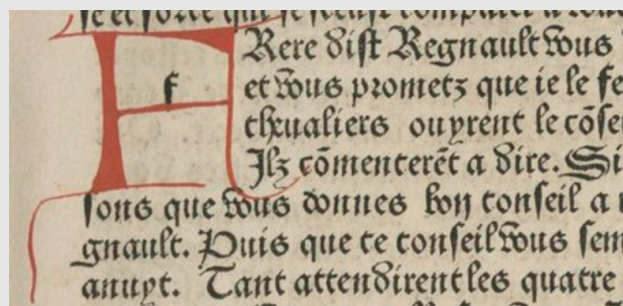 se et sorte qui se sceust comparer a vous
FRere dist Regnault vous
f
et vous prometz que ie le fe
cheualiers ouyrent le cõse
Jlz cõmenterẽt a dire. Si
sons que vous donnes bon conseil a
gnault. Puis que ce conseil vous sem
anuyt. Tant attendirent les quatre